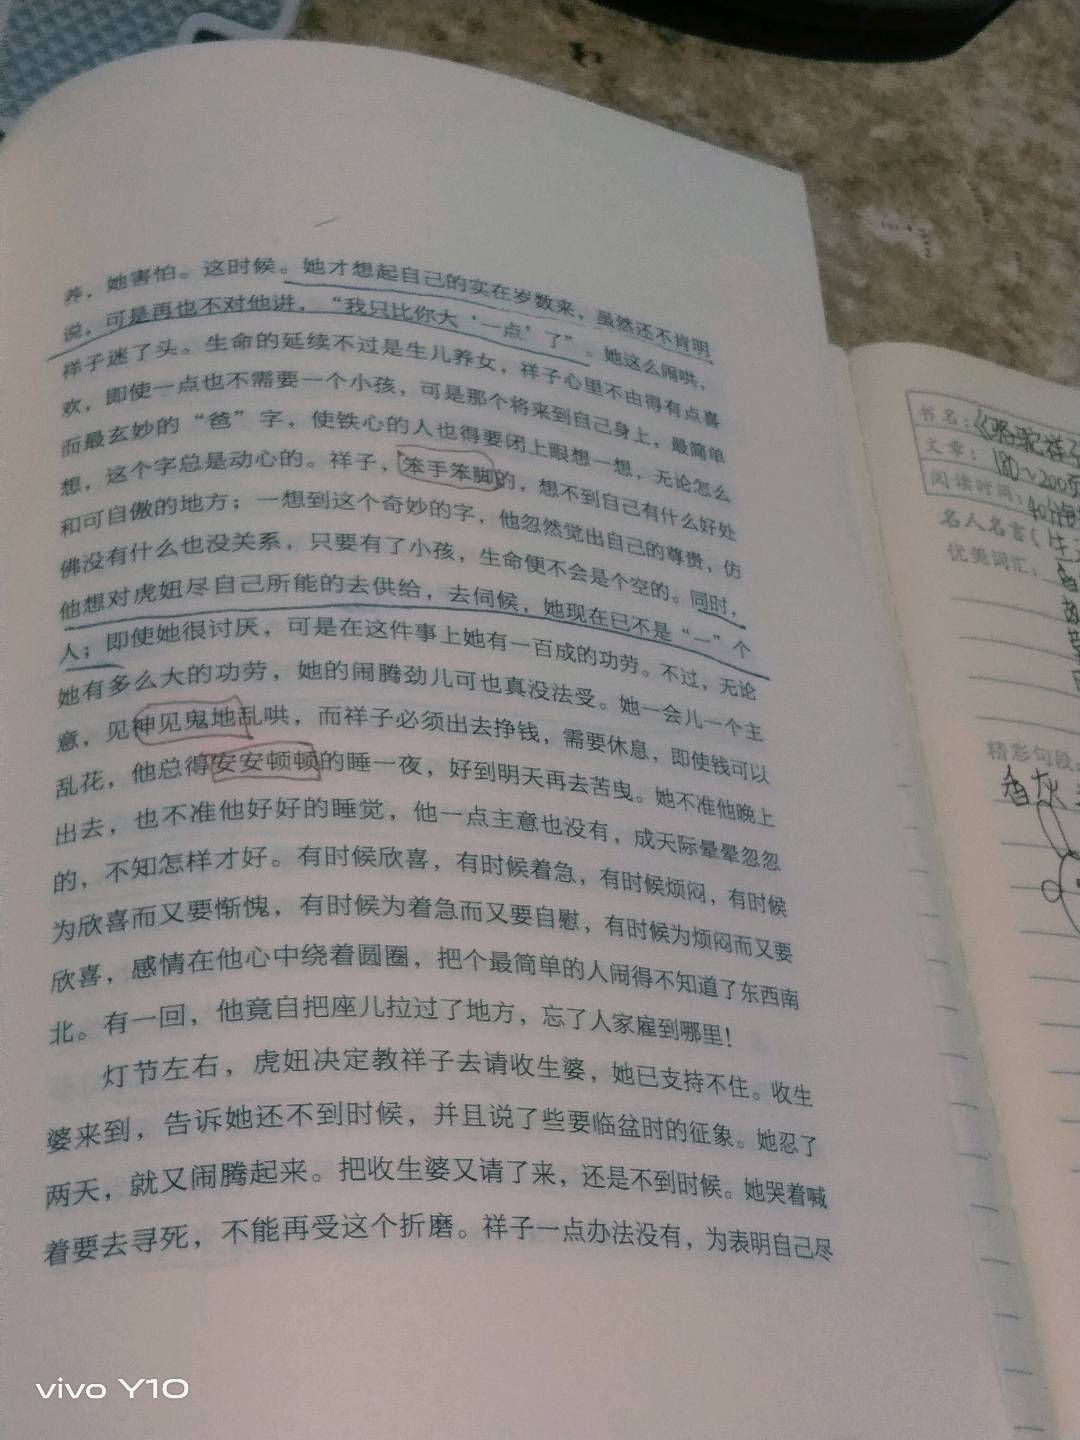 养，她害怕。这时候。她才想起自己的实在岁数来，虽然还不肯明
说，可是再也不对他讲，“我只比你大‘一点’了”。她这么闹哄，
祥子迷了头。生命的延续不过是生儿养女，祥子心里不由得有点喜
欢，即使一点也不需要一个小孩，可是那个将来到自己身上，最简单
而最玄妙的“爸”字，使铁心的人也得要闭上眼想一想，无论怎么
想，这个字总是动心的。祥子，笨手笨脚的，想不到自己有什么好处
和可自傲的地方；一想到这个奇妙的字，他忽然觉出自己的尊贵，仿
佛没有什么也没关系，只要有了小孩，生命便不会是个空的。同时，
他想对虎妞尽自己所能的去供给，去伺候，她现在已不是“一”个
人；即使她很讨厌，可是在这件事上她有一百成的功劳。不过，无论
她有多么大的功劳，她的闹腾劲儿可也真没法受。她一会儿一个主
意，见神见鬼地乱哄，而祥子必须出去挣钱，需要休息，即使钱可以
乱花，他总得安安顿顿的睡一夜，好到明天再去苦曳。她不准他晚上
出去，也不准他好好的睡觉，他一点主意也没有，成天际晕晕忽忽
的，不知怎样才好。有时候欣喜，有时候着急，有时候烦闷，有时候
为欣喜而又要惭愧，有时候为着急而又要自慰，有时候为烦闷而又要
欣喜，感情在他心中绕着圆圈，把个最简单的人闹得不知道了东西南
北。有一回，他竟自把座儿拉过了地方，忘了人家雇到哪里！
灯节左右，虎妞决定教祥子去请收生婆，她已支持不住。收生
婆来到，告诉她还不到时候，并且说了些要临盆时的征象。她忍了
两天，就又闹腾起来。把收生婆又请了来，还是不到时候。她哭着喊
着要去寻死，不能再受这个折磨。祥子一点办法没有，为表明自己尽
书名：《骆驼祥子
文章：180~200页
阅读时间：40分
名人名言（
优美词汇：
精彩句段
vivo Y10